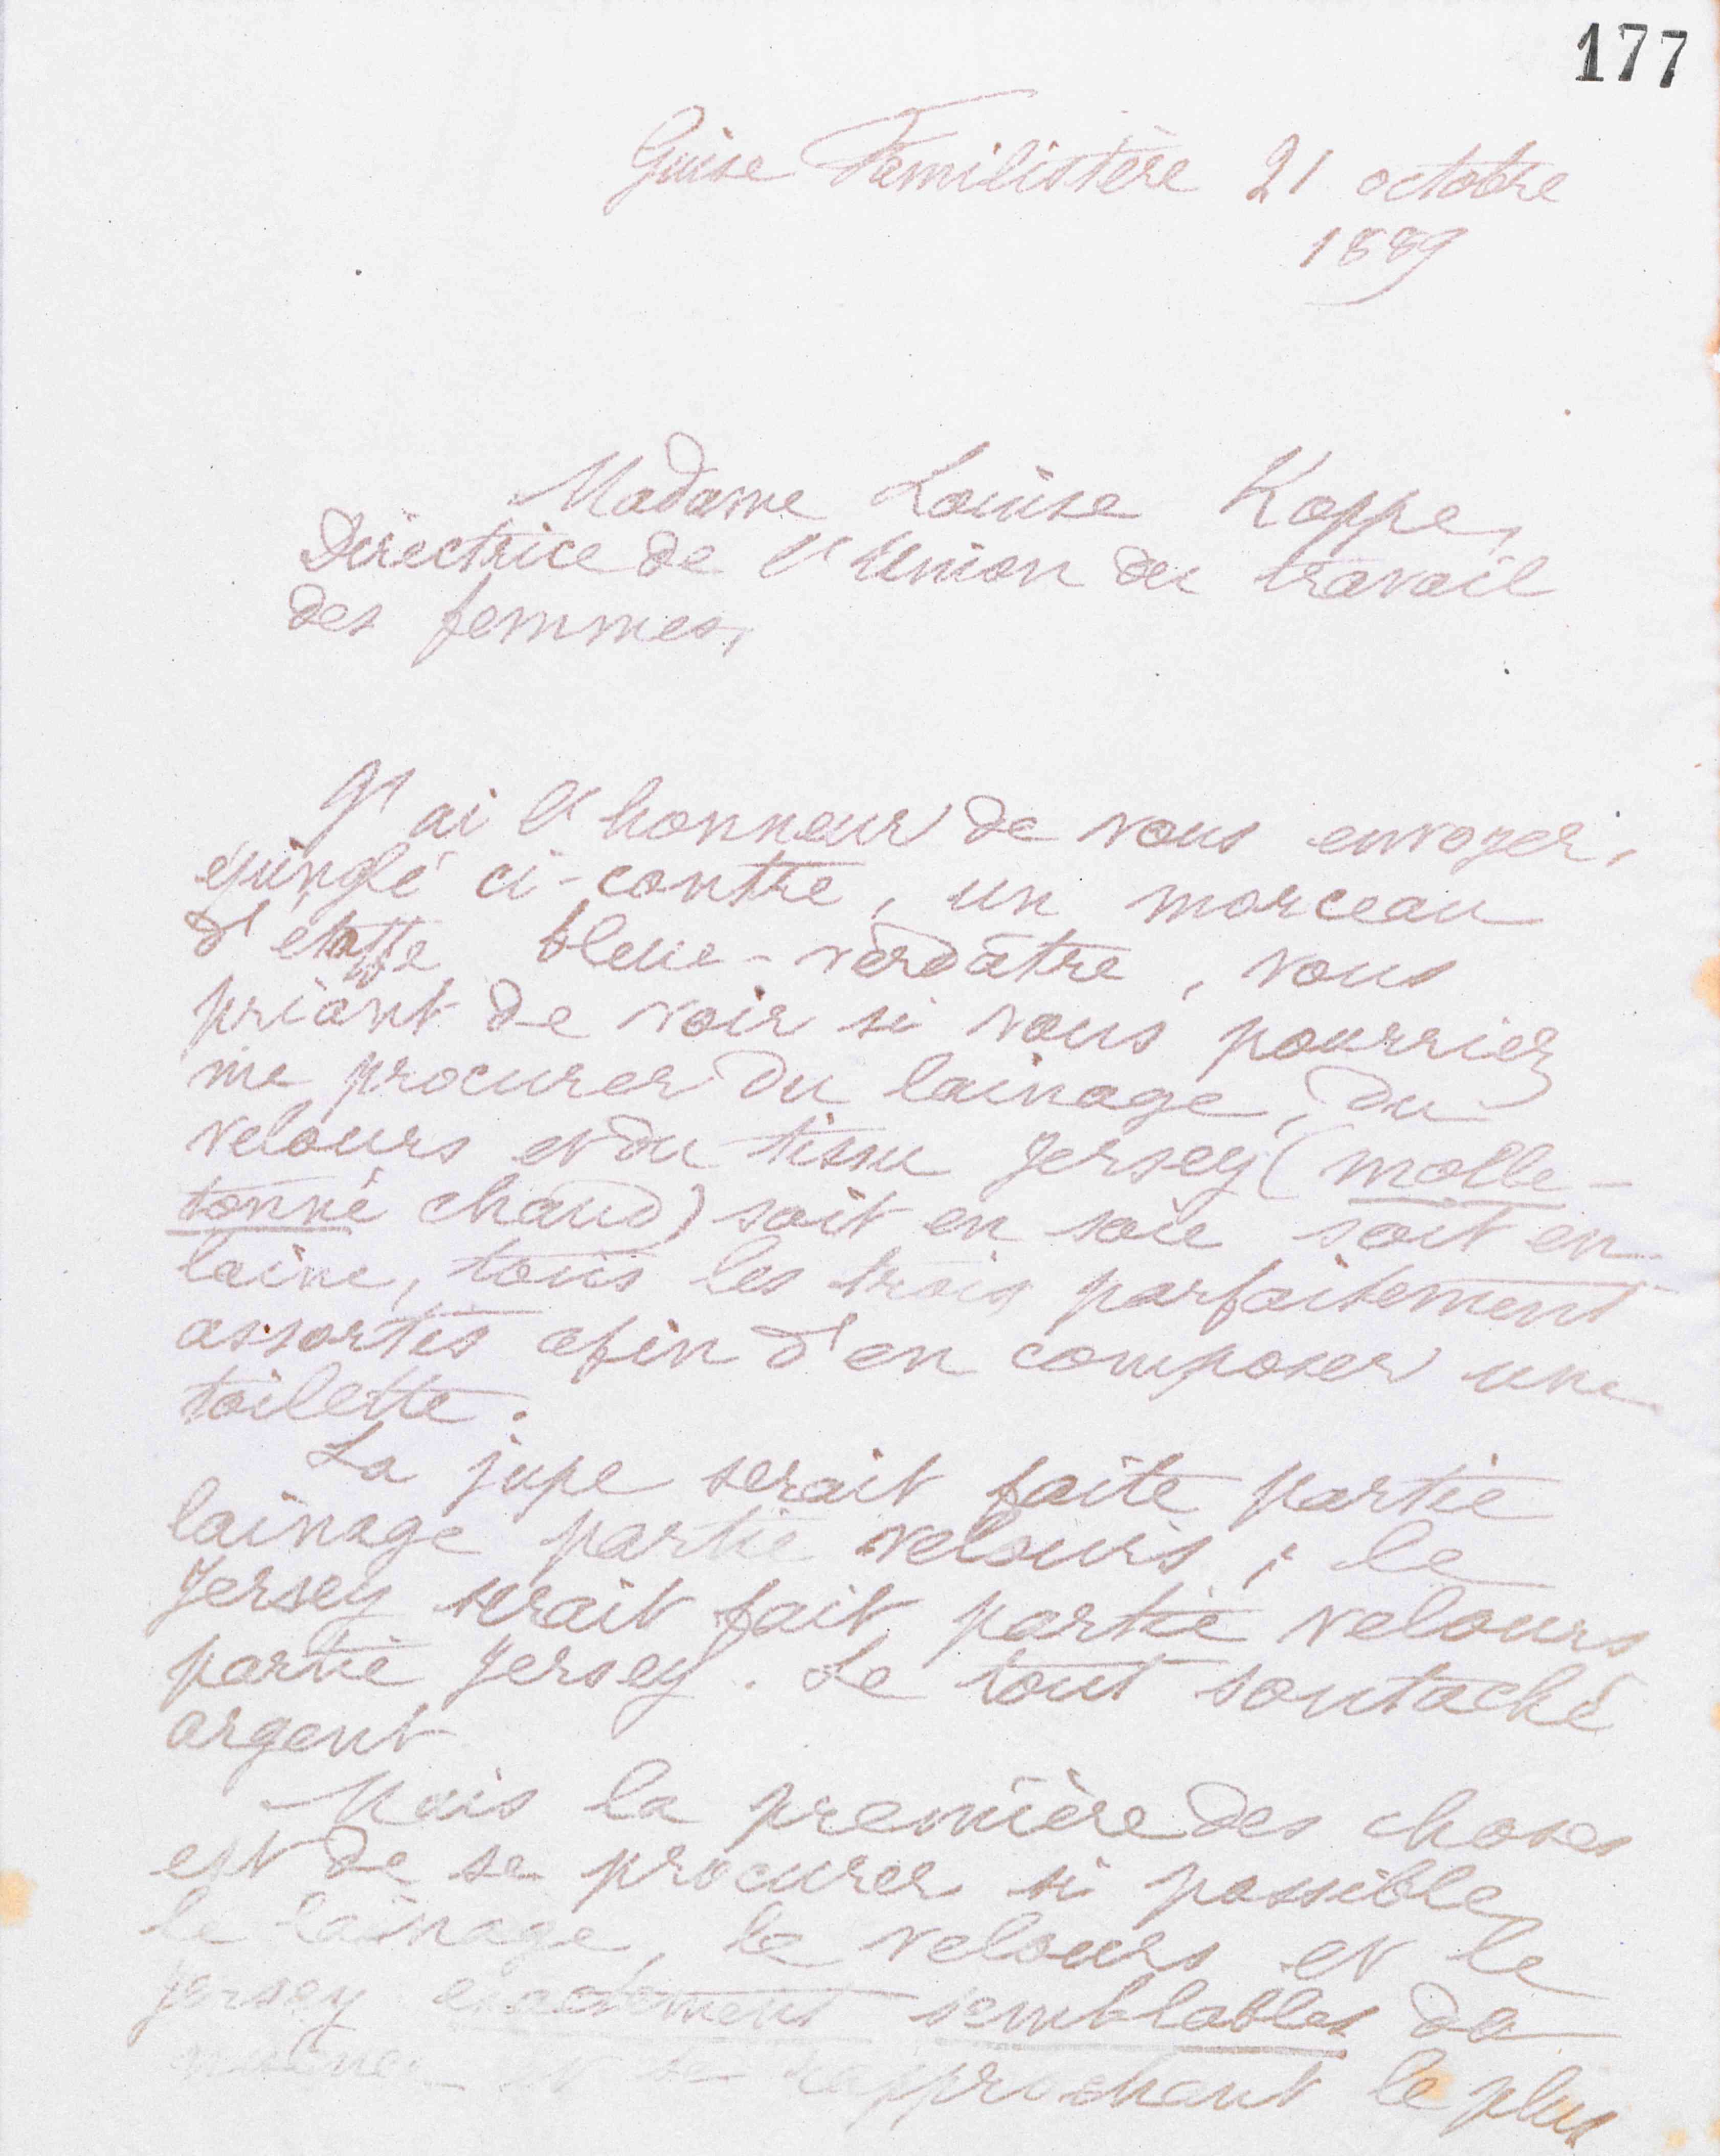 177
Guise Familistère 21 octobre
1889
Madame Louise Koppe,
Directrice de l'Union du travail
des femmes,
J'ai l'honneur de vous envoyer,
épinglé ci-contre, un morceau
d'étoffe bleue-verdâtre, vous
priant de voir si vous pourriez
me procurer du lainage, du
velours et du tissu Jersey (molle-
tonné chaud) soit en soie soit en
laine, tous les trois parfaitement
assortis afin d'en composer une
toilette.
La jupe serait faite partie
lainage partie velours ; le
Jersey serait fait partie velours
partie Jersey. Le tout soutaché
argent
Mais la première des choses
est de se procurer si possible
le lainage, le velours et le
Jersey exactement semblables de
et se rapprochant le plus